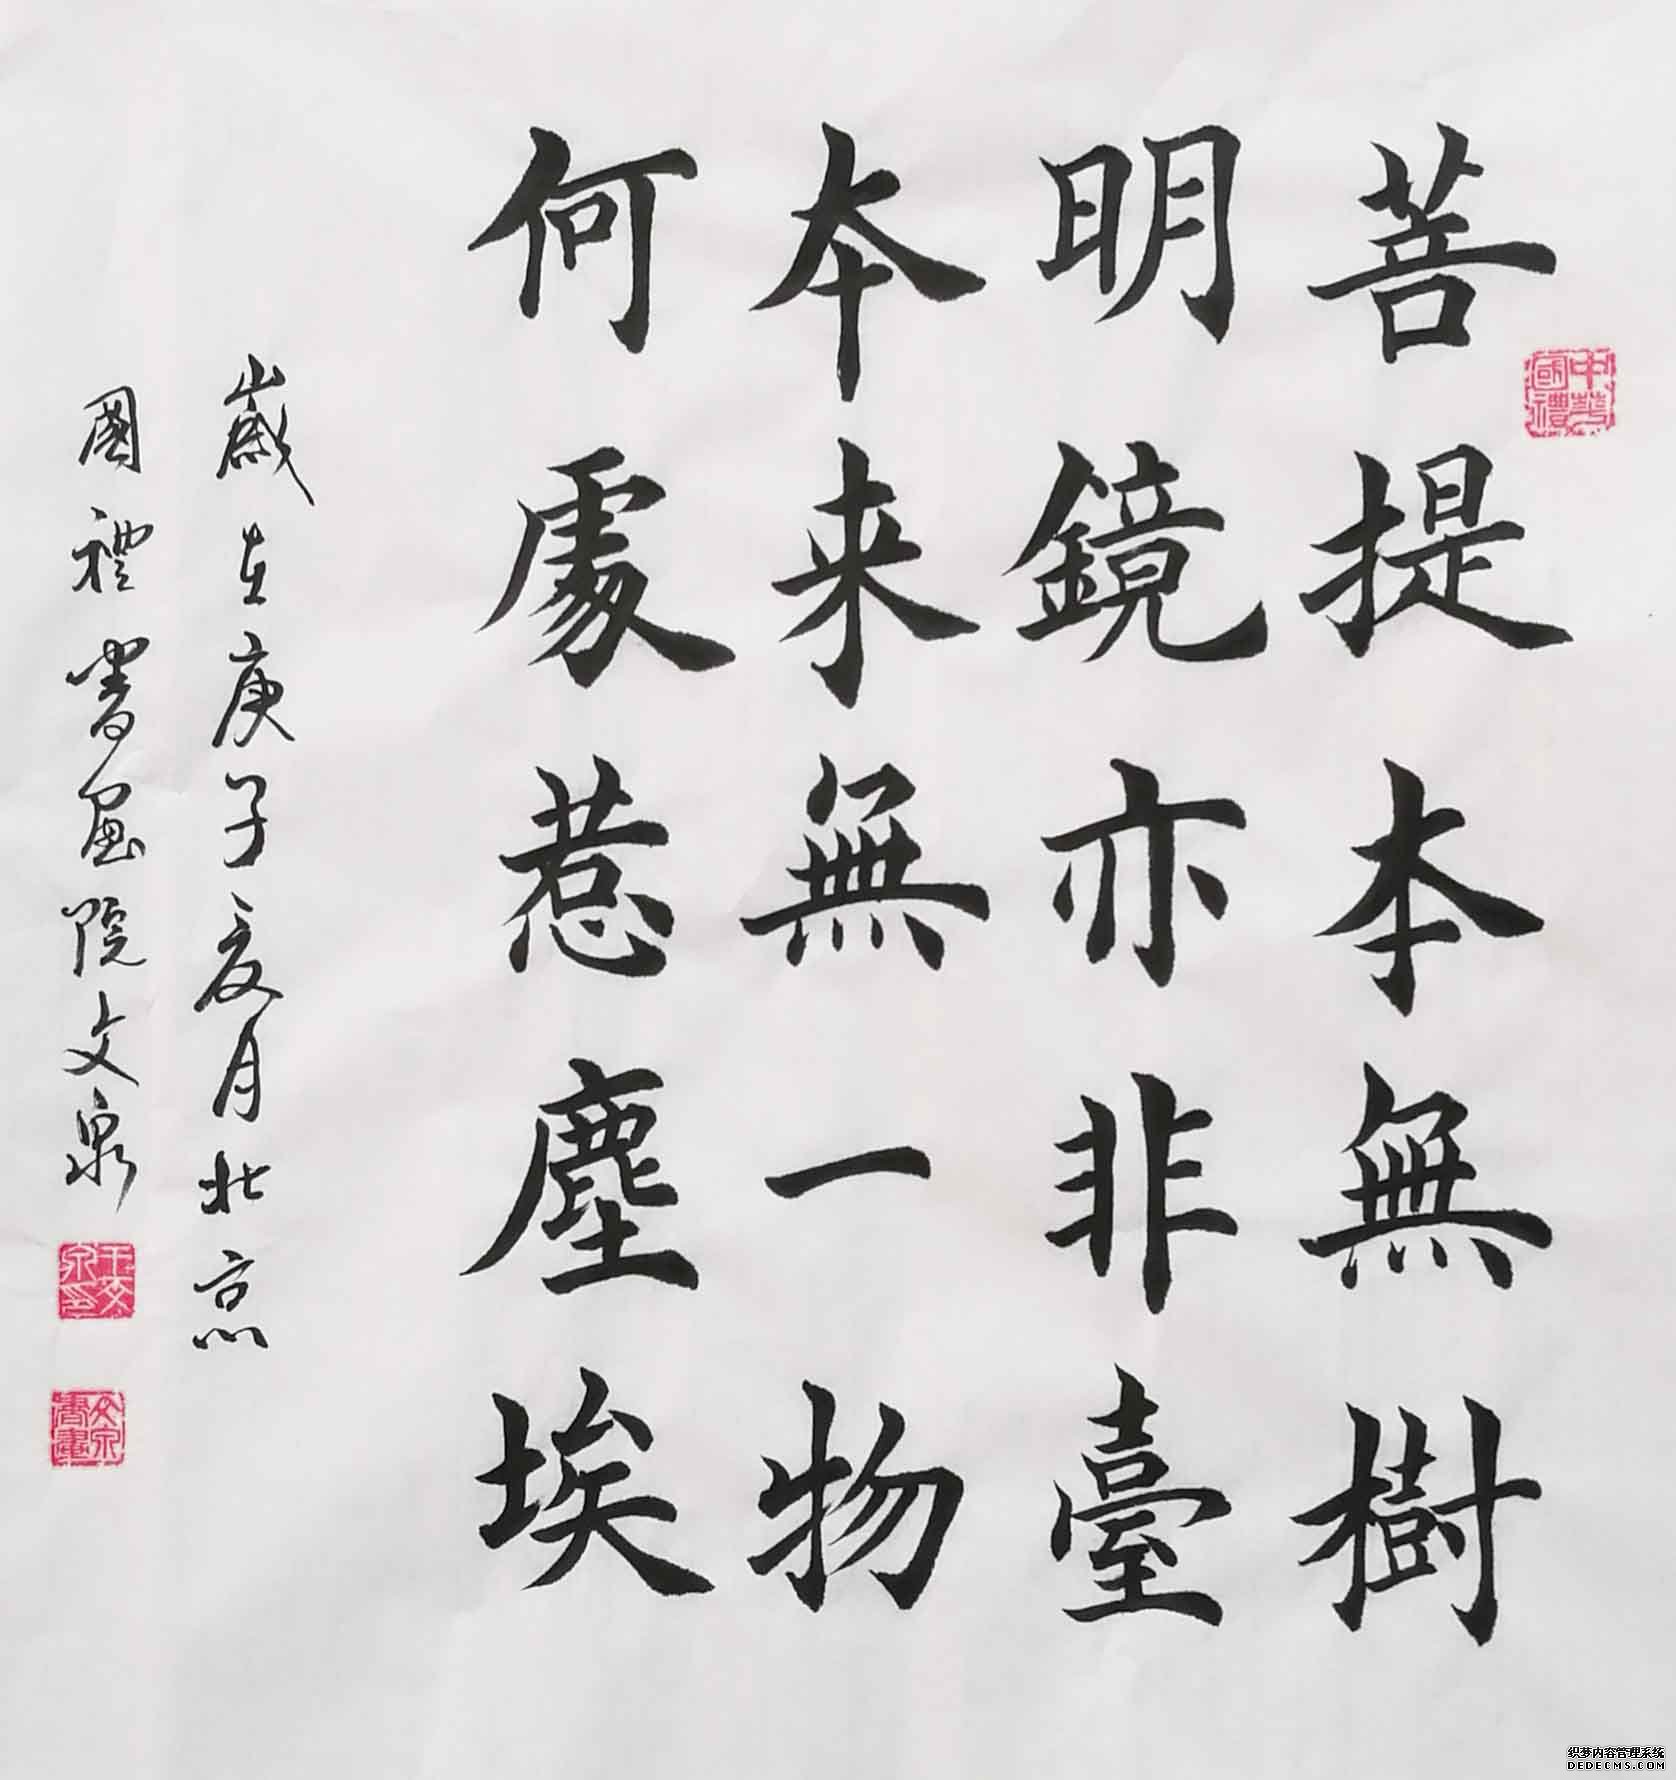 中華國禮
菩提本無樹
明鏡亦非臺
本来無一物
何處惹塵埃
歲在庚子夏月北京
國禮書畫院文泉
王文泉印
文泉書畫
织梦内容管理系统
DEDECMS.COM